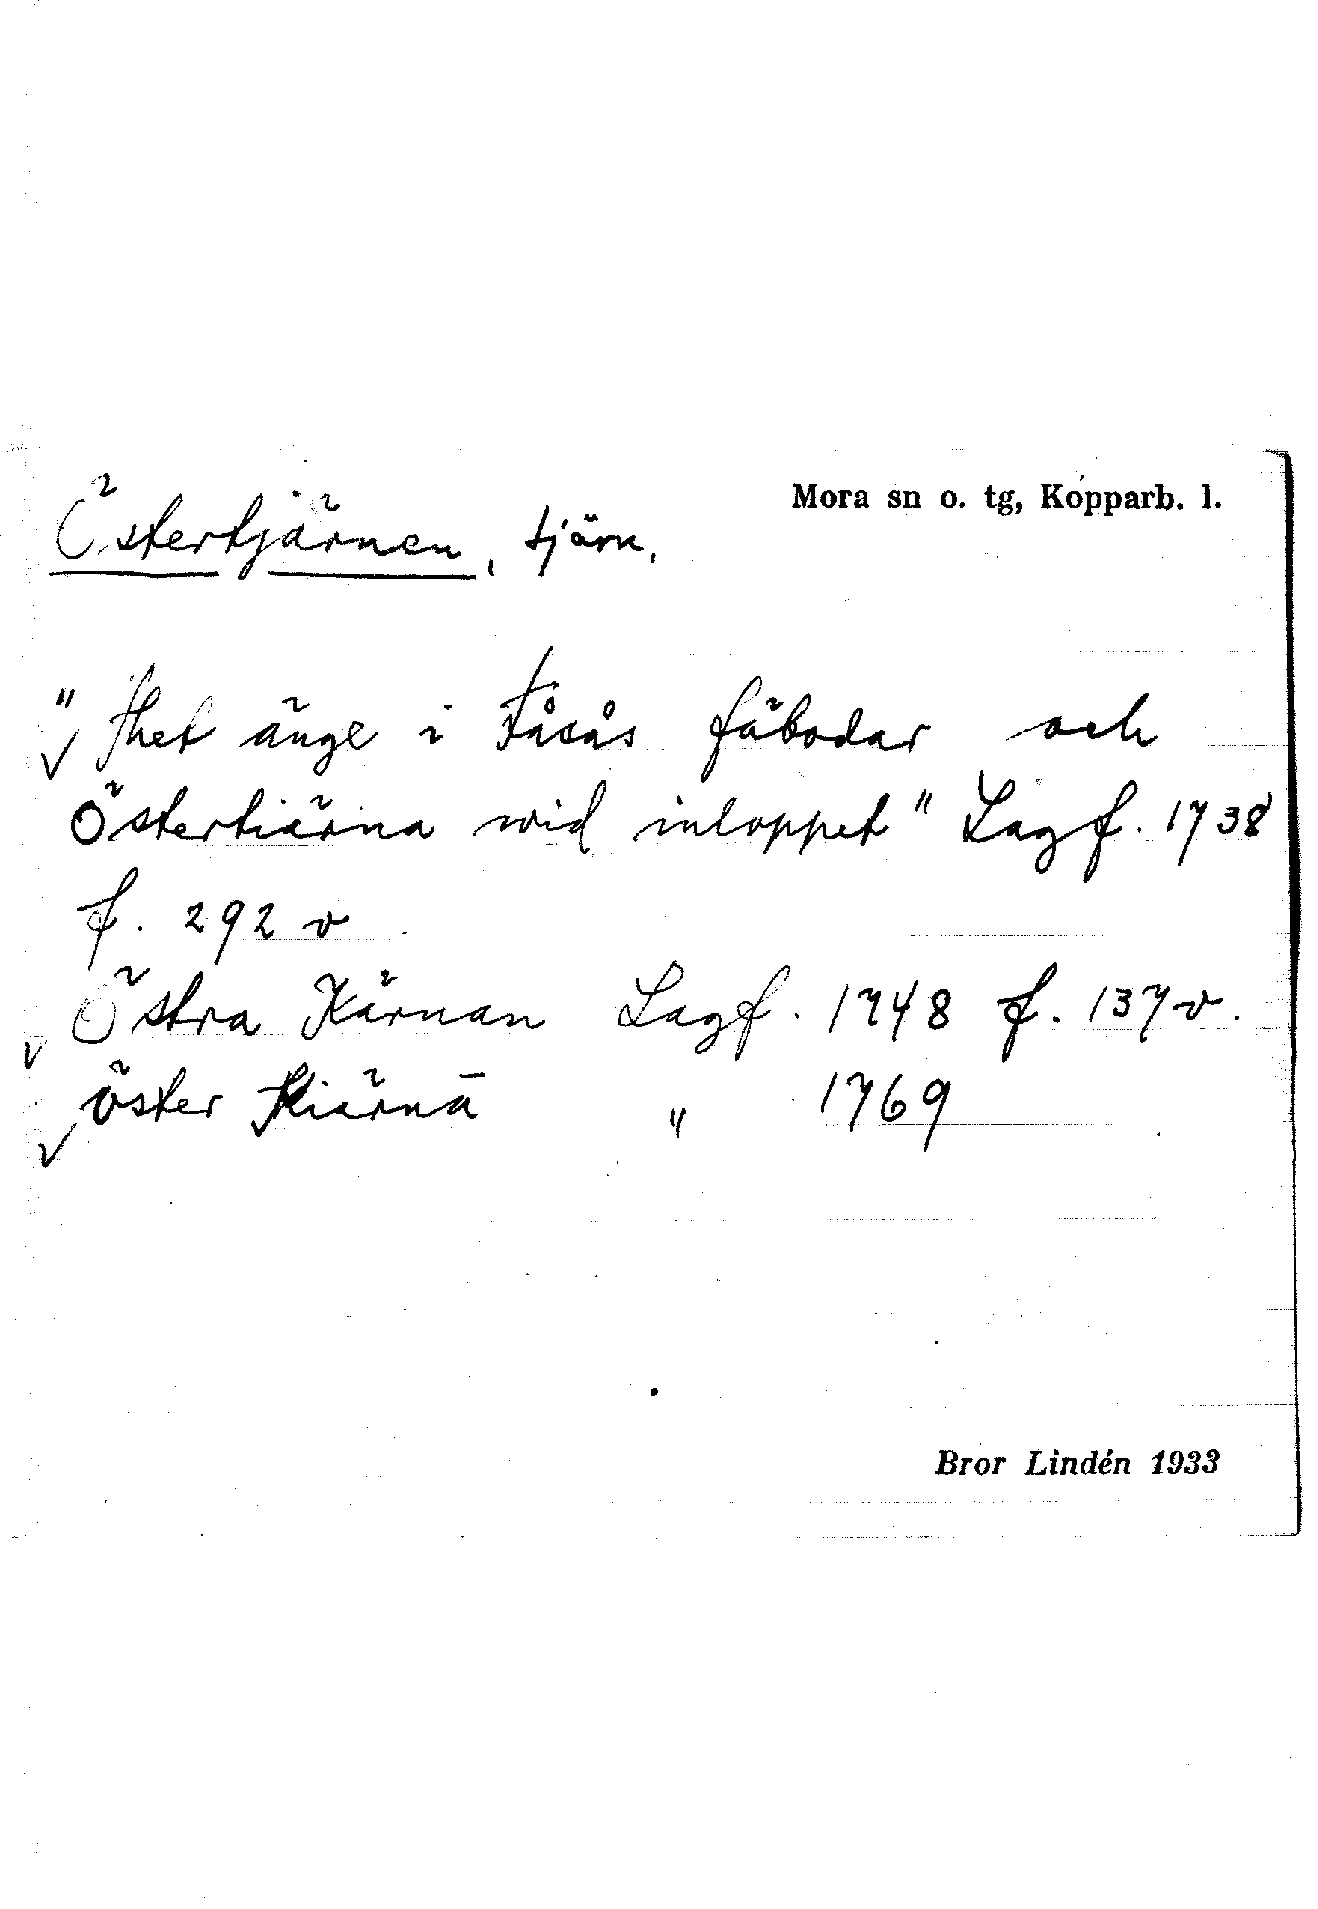 Mora sn o. tg, Kopparb. l.
Östertjärnen, tjärn.
"thet änge i Fåsås fäbodar och
Östertiärna wid inloppet" Lagf. 1738
f. 292 v
Östra Kärnan Lagf. 1748 f. 137 v.
öster Kiärnā " 1769
Bror Lindén 1933